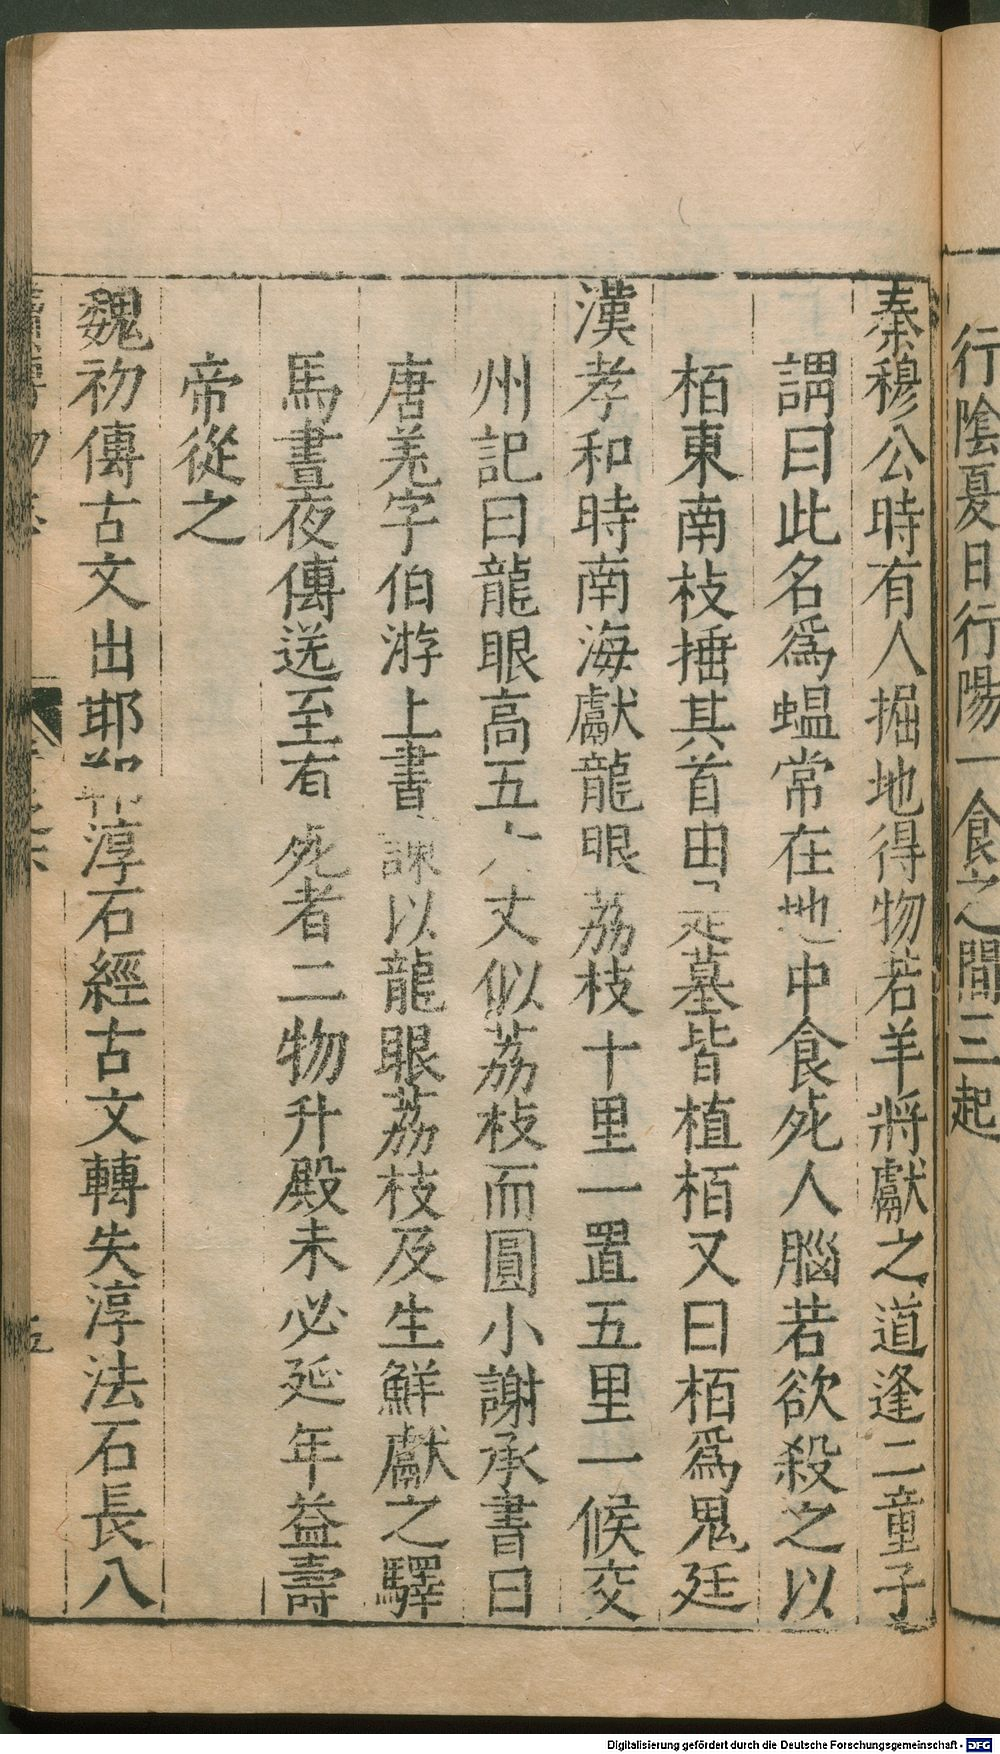 行隂夏日行陽一食之間三起
秦穆公時有人掘地得物若羊將獻之道逢二童子
謂曰此名爲蝹常在地中食死人腦若欲殺之以
栢東南枝捶其首由是墓皆植栢又曰栢爲鬼廷
漢孝和時南海獻龍眼荔枝十里一置五里一候交
州記曰龍眼高五六丈似荔枝而圓小謝承書曰
唐羗字伯游上書諫以龍眼荔枝及生鮮獻之驛
馬晝夜傳送至有死者二物升殿未必延年益壽
帝從之
魏初傳古文出邯鄲淳石經古文轉失淳法石長八
五
Digitalisierung gefördert durch die Deutsche Forschungsgemeinschaft - DFG